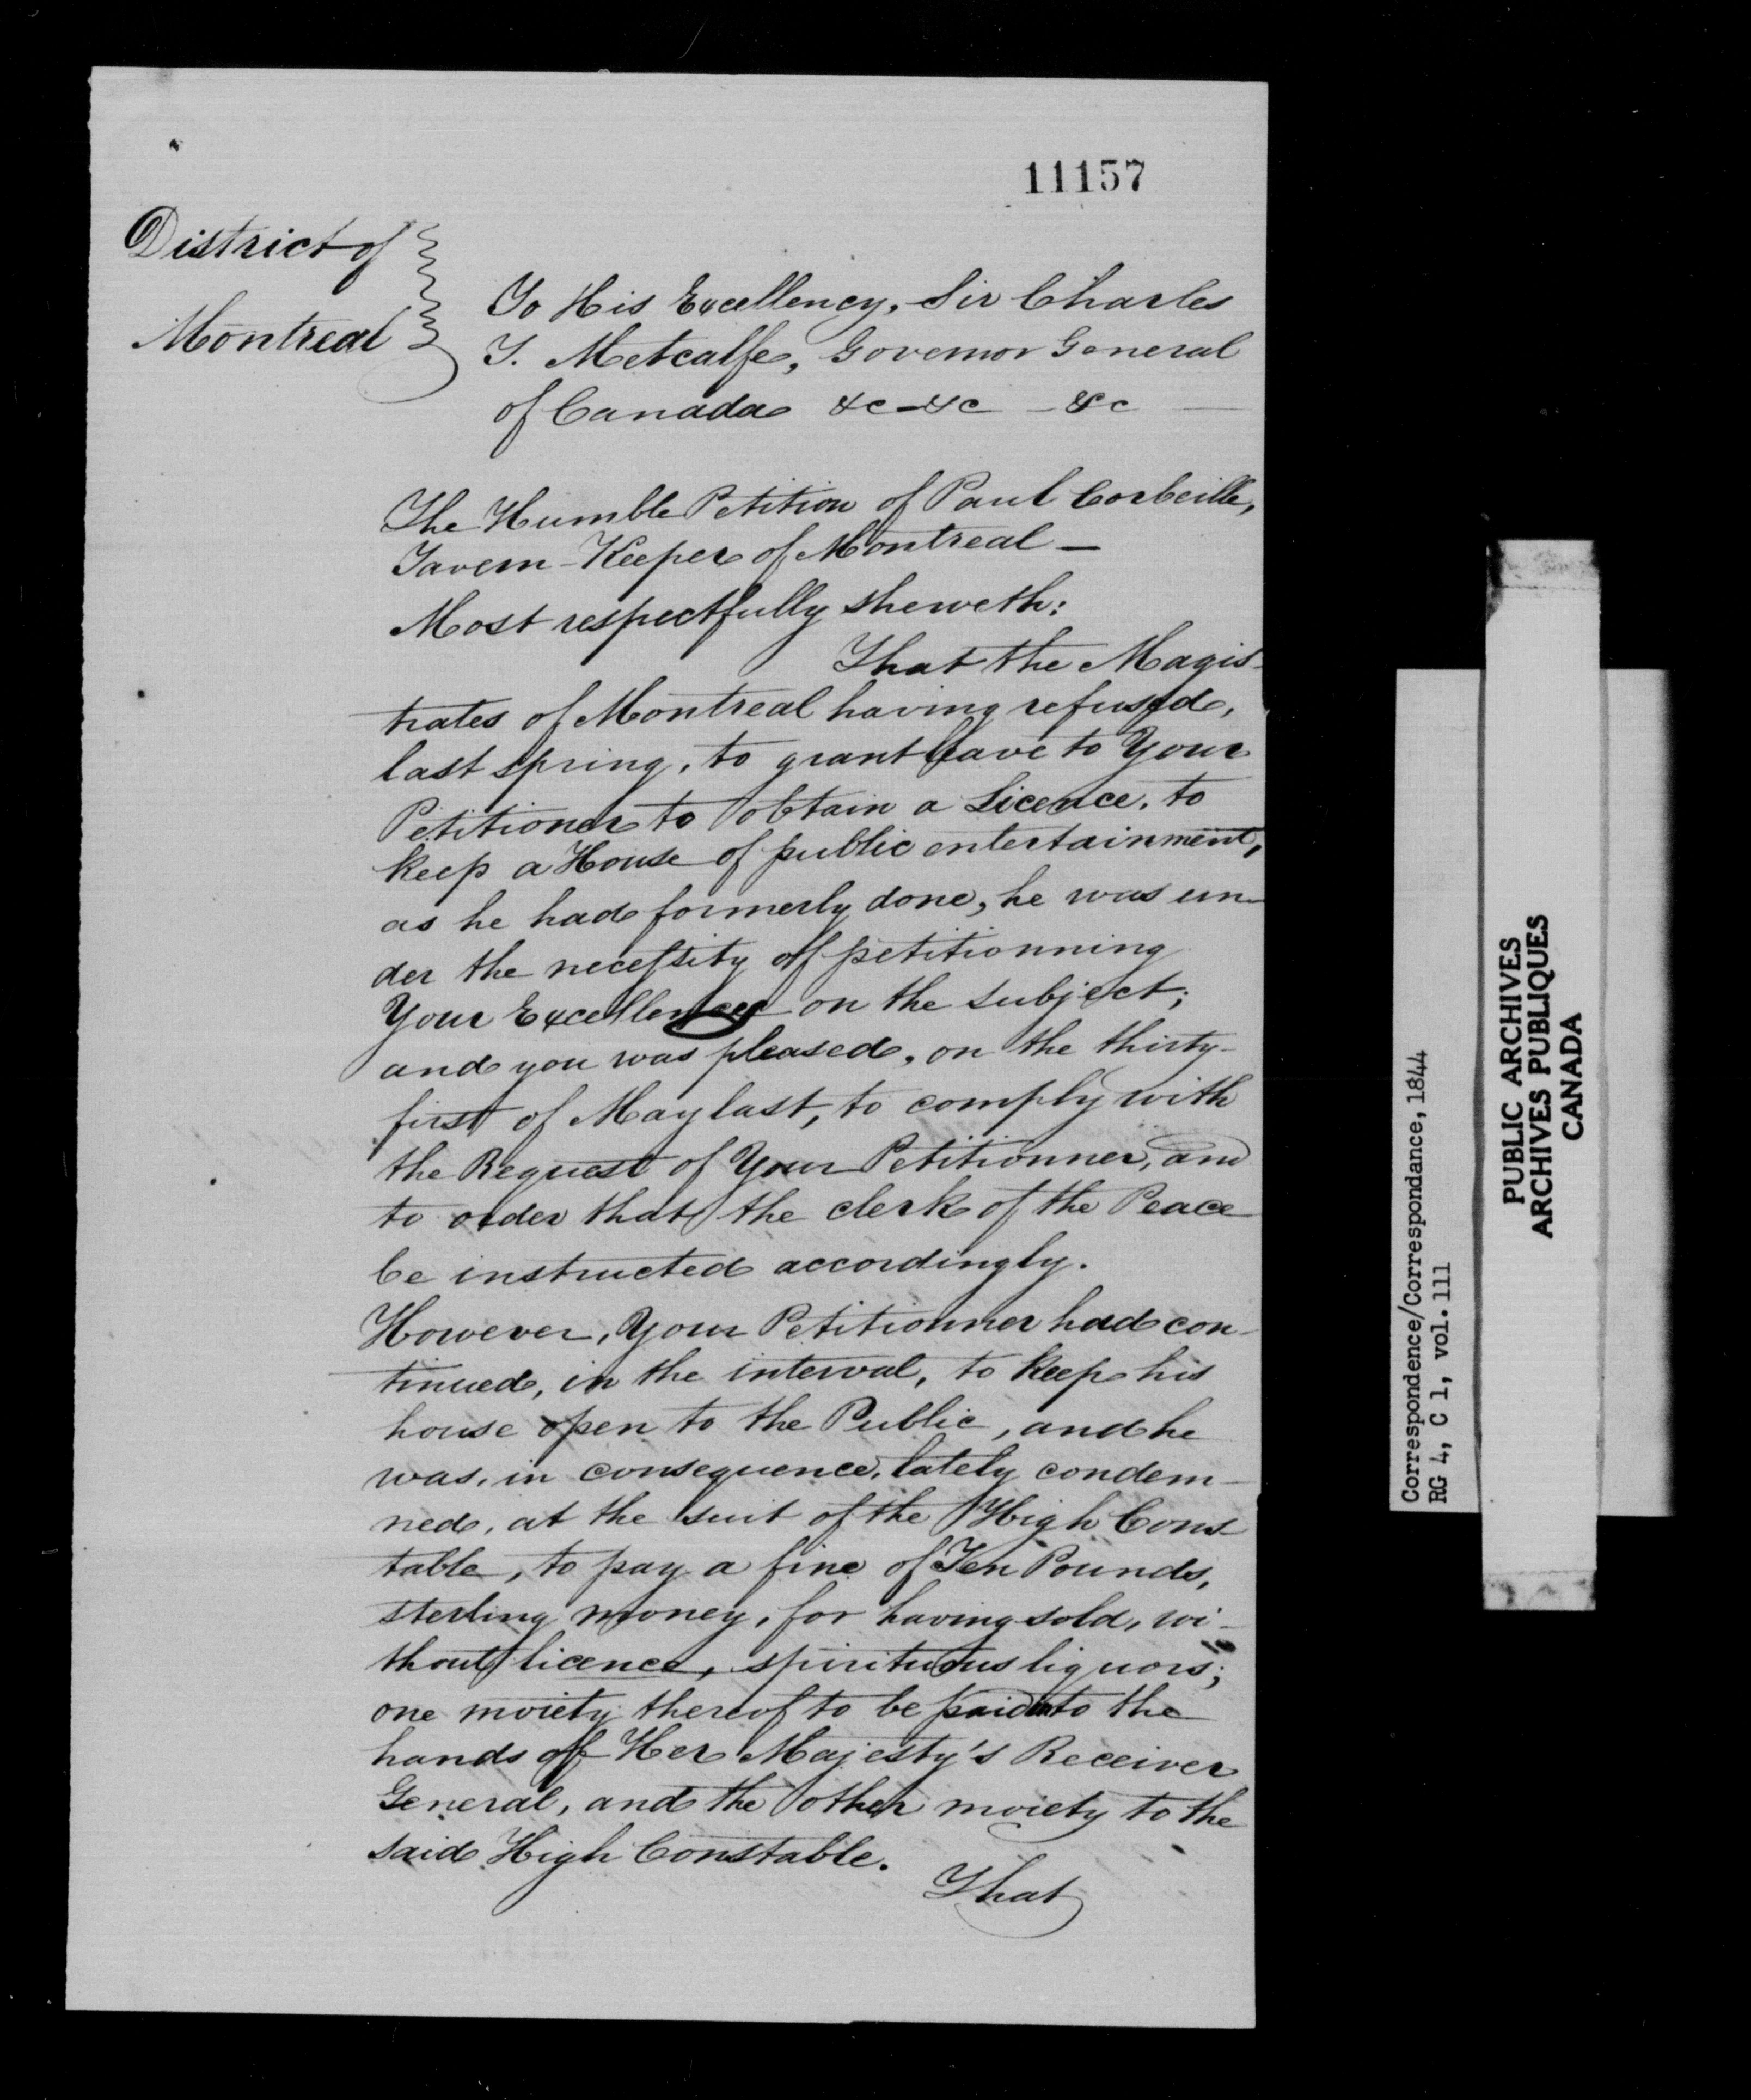 11157
District of
Montreal
To His Excellency, Sir Charles
T. Metcalfe, Governor General
of Canada &c - &c - &c
The Humble Petition of Paul Corbeille,
Tavern-Keeper of Montreal —
Most respectfully sheweth:
That the Magis-
trates of Montreal having refused,
last spring, to grant leave to Your
Petitioner to obtain a Licence, to
keep a House of public entertainment,
as he had formerly done, he was un-
der the necessity of petitionning
Your Excellency on the subject;
and you was pleased, on the thirty-
first of May last, to comply with
the Request of Your Petitionner, and
to order that the clerk of the Peace
be instructed accordingly.
However, Your Petitionner had con-
tinued, in the interval, to keep his
house open to the Public, and he
was, in consequence, lately condem-
ned, at the suit of the High Cons
table, to pay a fine of Ten Pounds,
sterling money, for having sold, wi-
thout licence, spirituous liquors;
one moiety thereof to be paid into the
hands of Her Majesty's Receiver
General, and the other moiety to the
said High Constable.
That
Correspondence/Correspondance, 1844
RG 4, C 1, vol. 111
PUBLIC ARCHIVES
ARCHIVES PUBLIQUES
CANADA